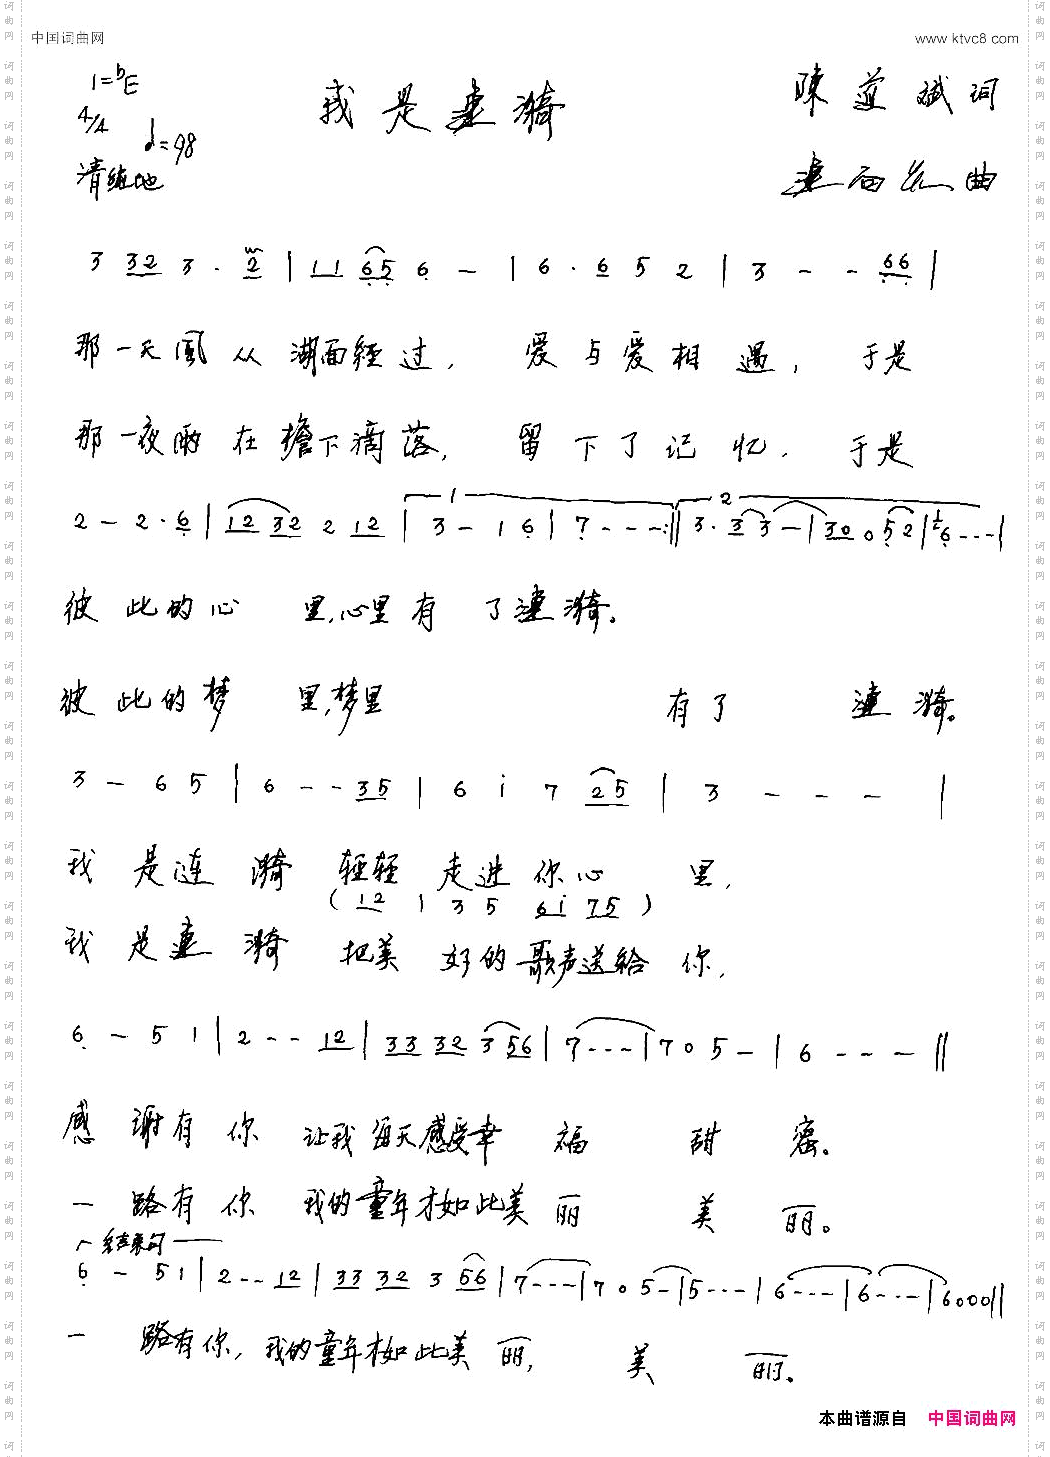 中国词曲网 www.ktvc8.com
1=bE
我是涟漪 陳道斌词
4/4 ♩=98
清纯地 曲
3 32 3 · 2 | 11 65 6 - | 6 · 6 5 2 | 3 - - 66 |
那一天風从湖面經过, 爱与爱相遇, 于是
那一夜雨在檐下滴落, 留下了记忆, 于是
2 - 2·6 | 12 32 2 12 | 1 3 - 1 6 | 7 - - - :|| 2 3·3 3 - | 30 0 5 2 | 6 - - - |
彼此的心里,心里有了漣漪。
彼此的梦里,梦里有了漣漪。
3 - 6 5 | 6 - - 35 | 6 i 7 25 | 3 - - - |
我是涟漪轻轻走进你心里,
( 12 1 3 5 6i 75 )
我是漣漪把美好的歌声送给你,
6 - 5 1 | 2 - - 12 | 33 32 3 56 | 7 - - - | 7 0 5 - | 6 - - - ||
感谢有你让我每天感受幸福甜蜜。
一路有你我的童年才如此美丽美丽。
结束句
6 - 5 1 | 2 - - 12 | 33 32 3 56 | 7 - - - | 7 0 5 - | 5 - - - | 6 - - - | 6 - - - | 6000 ||
一路有你,我的童年才如此美丽,美丽。
本曲谱源自 中国词曲网